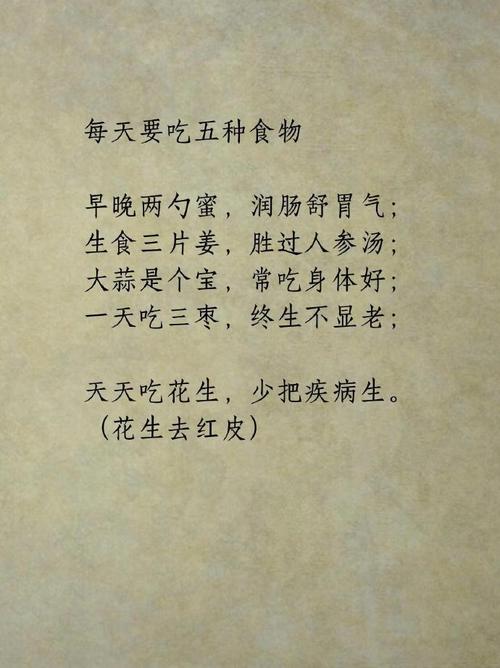 每天要吃五种食物
早晚两勺蜜，润肠舒胃气；
生食三片姜，胜过人参汤；
大蒜是个宝，常吃身体好；
一天吃三枣，终生不显老；
天天吃花生，少把疾病生。
（花生去红皮）